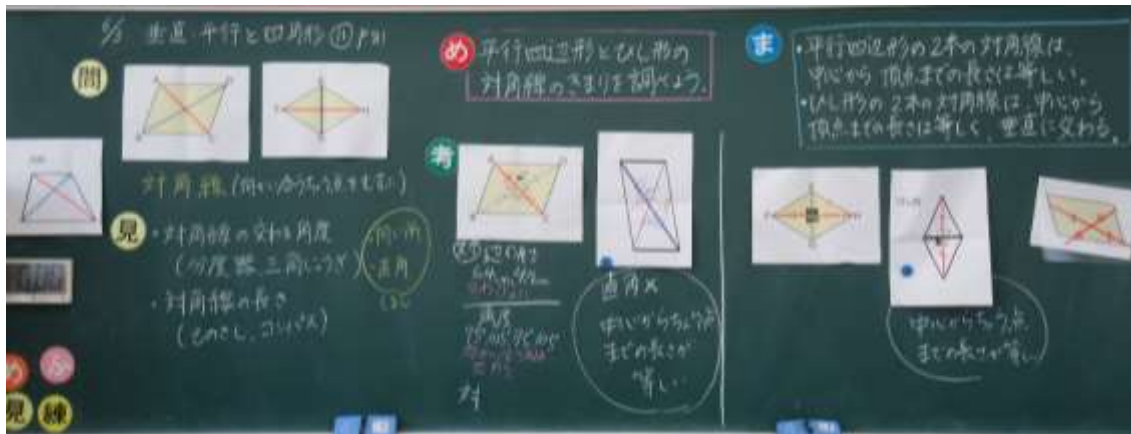 6/5 垂直 平行と四角形 ⑪ P81
問
対角線(向かい合うちょう点をむすぶ)
見
・対角線の交わる角度
(分度器、三角じょうぎ)
・対角線の長さ
(ものさし、コンパス)
直角
め
平行四辺形とひし形の
対角線のきまりを調べよう。
考
辺の長さ
角度
対
直角×
中心からちょう点
までの長さが
等しい
ま
・平行四辺形の2本の対角線は、
中心から頂点までの長さは等しい。
・ひし形の2本の対角線は、中心から
頂点までの長さは等しく、垂直に交わる。
中心からちょう点
までの長さが等しい
め
見
練